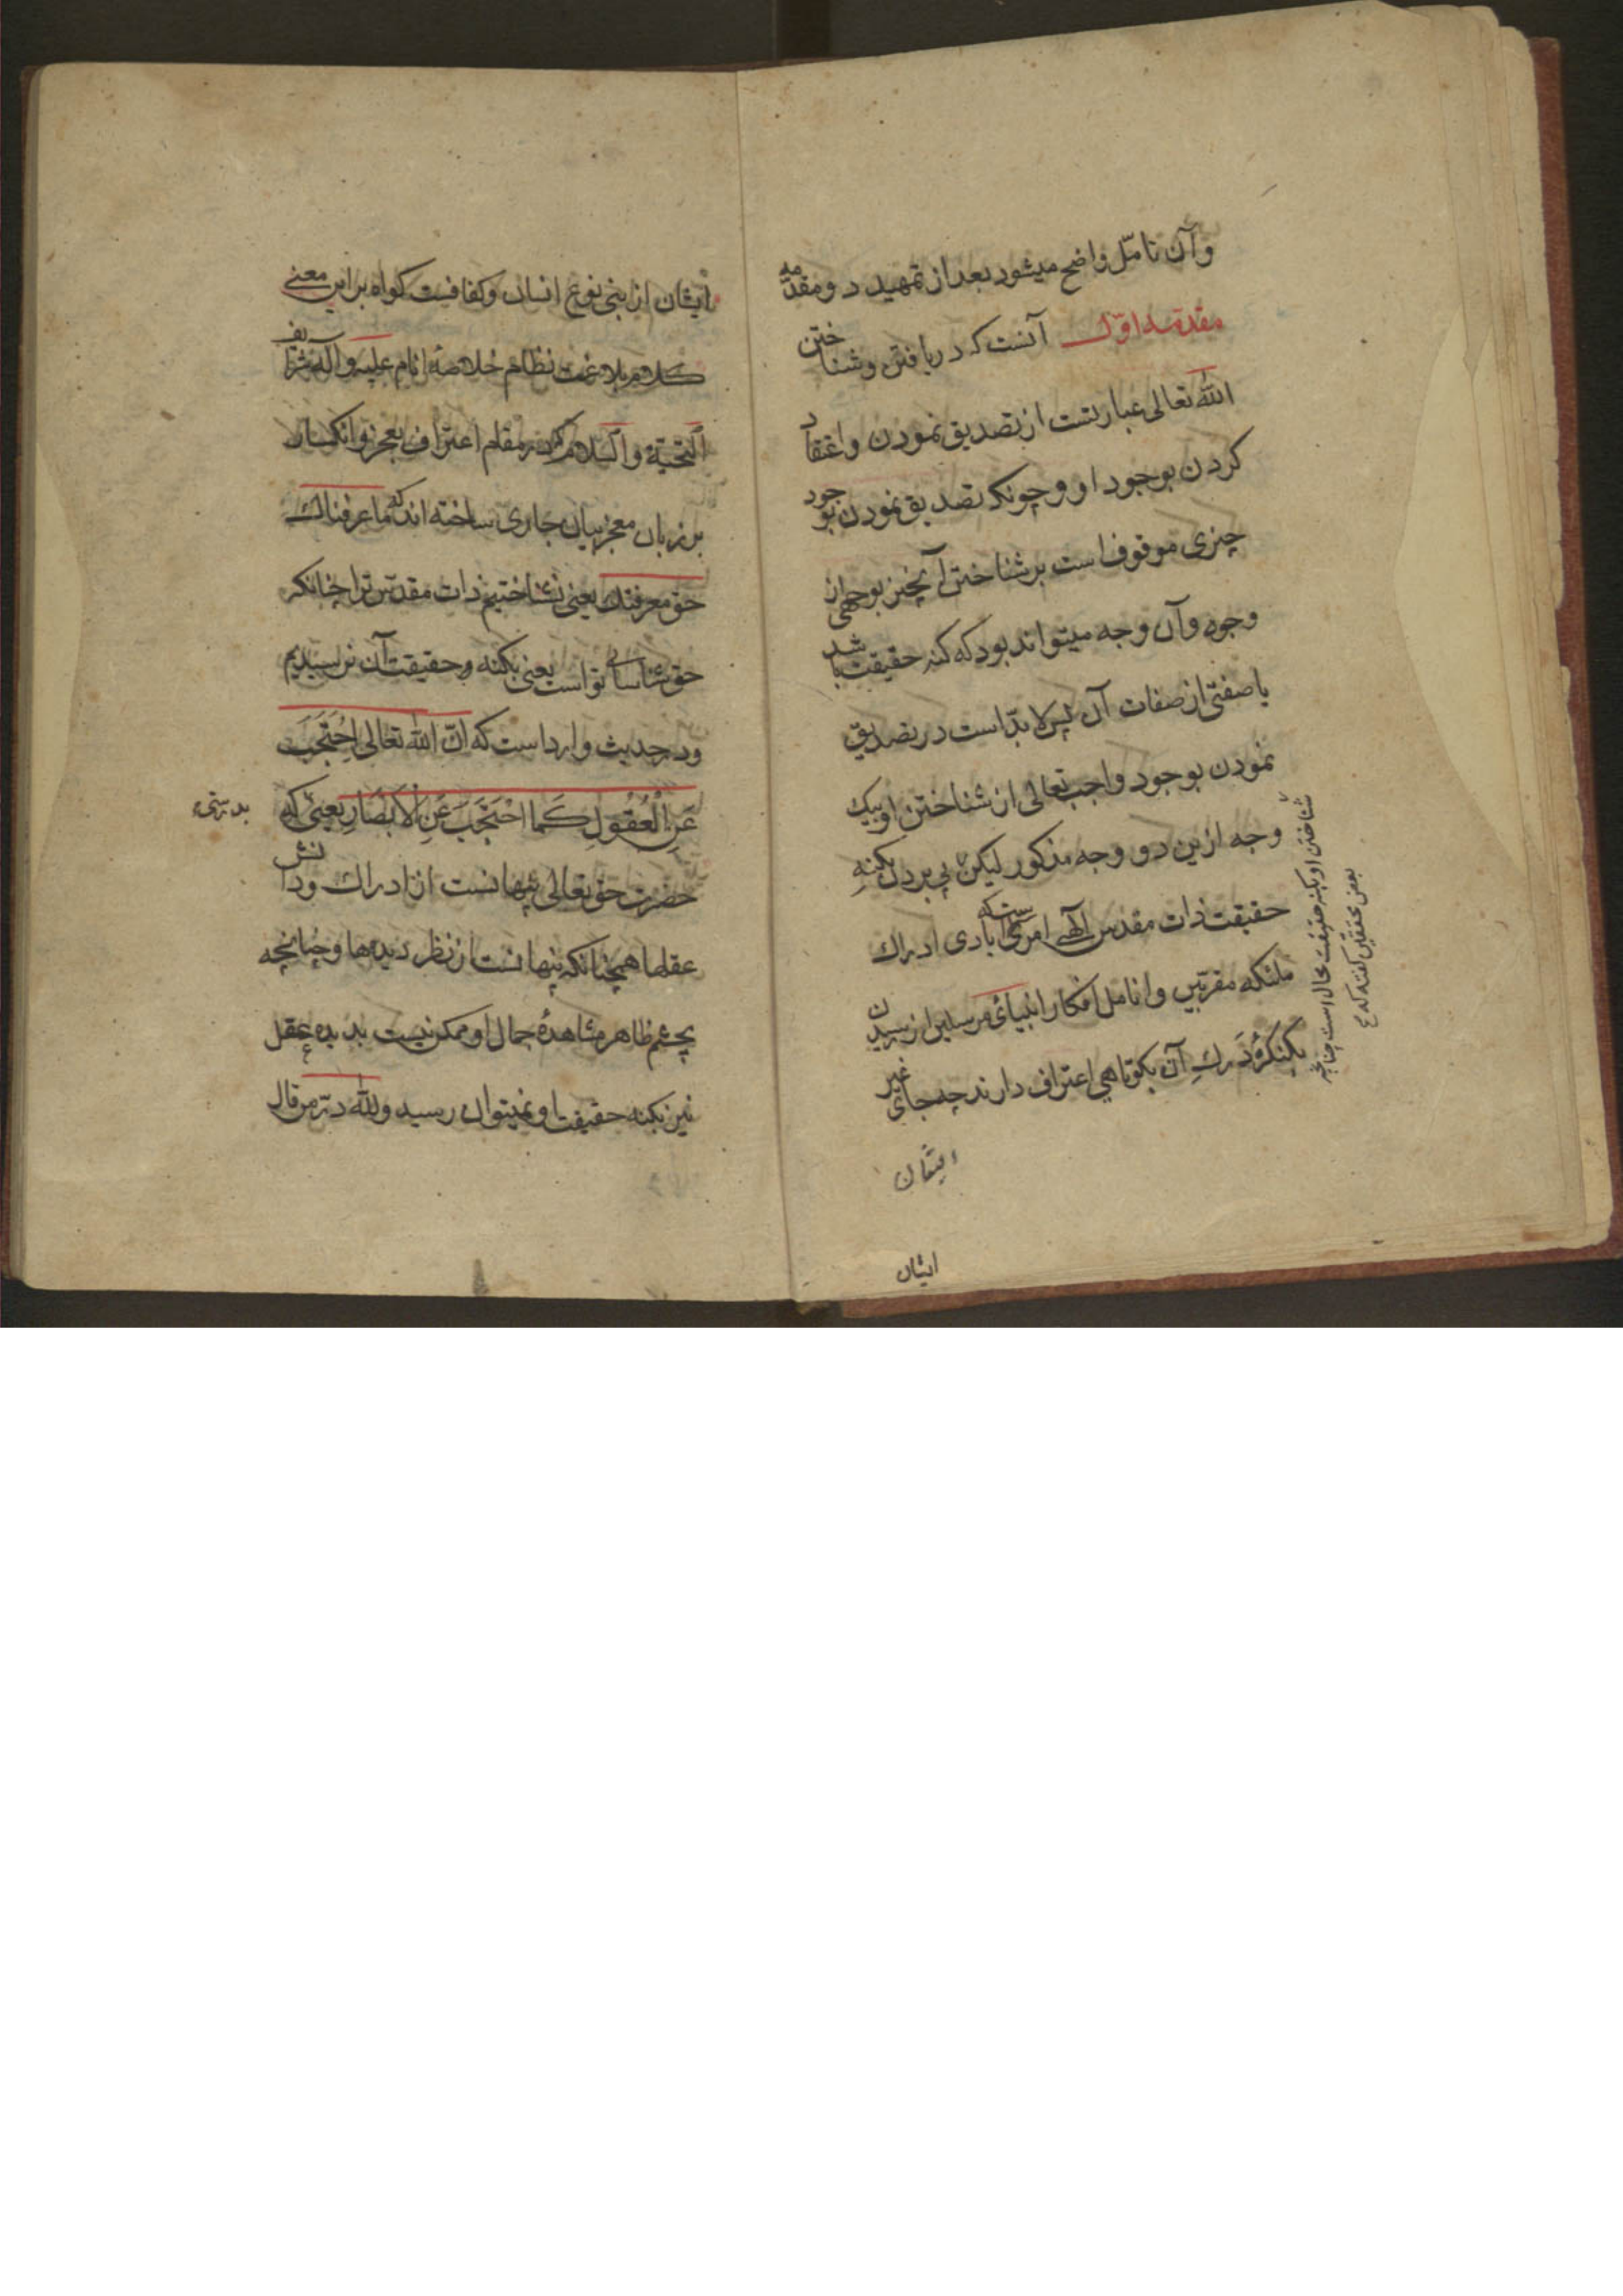 وآن تامّل واضح میشود بعد از تمهید دو مقدّمه
مقدمه اوّل آنست که دریافتن وشناختن
الله تعالی عبارتست از تصدیق نمودن واعتقاد
کردن بوجود او وچونکه تصدیق نمودن بوجود
چیزی موقوف است بر شناختن آنچیز بوجهی از
وجوه وآن وجه میتواند بود که کنه حقیقت باشد
یا صفتی از صفات آن پس لابدّ است در تصدیق
نمودن بوجود واجب تعالی از شناختن او بیک
وجه ازین دو وجه مذکور لیکن پی بردن بکنهِ
حقیقت ذات مقدس آلهی امریست که ایادی ادراك
ملئکه مقرّبین وانامل افکار انبیائ مرسلین از رسیدن
بکنکرهٔ دَرك آن بکوتاهی اعتراف دارند چه جای غیر
ایشان
ایشان
شناختن او بکنه حقیقت محال است چنانچه
بعض محققین کفته که
ایشان از بنی نوع انسان وکفا فیست کواه بر این معنی
کلام بلاغت نظام خلاصهٔ انام علیه وآله شرایف
التحیّة والسّلام که در مقام اعتراف بعجز وانکسار
بر زبان معجز بیان جاری ساخته اند که ما عرفناك
حق معرفتك یعنی نشناختیم ذات مقدّس ترا چنانکه
حق شناسائی تو است یعنی بکنه وحقیقت آن نرسیدیم
ودر حدیث وارد است که انّ الله تعالی اِحْتَجَبَ
عَنِ الْعُقُولِ کَمَا احْتَجَبَ عَنِ الْاَبْصَارِ یعنی که
بدرستی
حضرت حق تعالی پنهانست از ادراك ودانش
عقلها همچنانکه پنهانست از نظر دیدها وچنانچه
بچشم ظاهر مشاهدهٔ جمال او ممکن نیست بدیده عقل
نیز بکنه حقیقت او نمیتوان رسید ولله درّ من قال